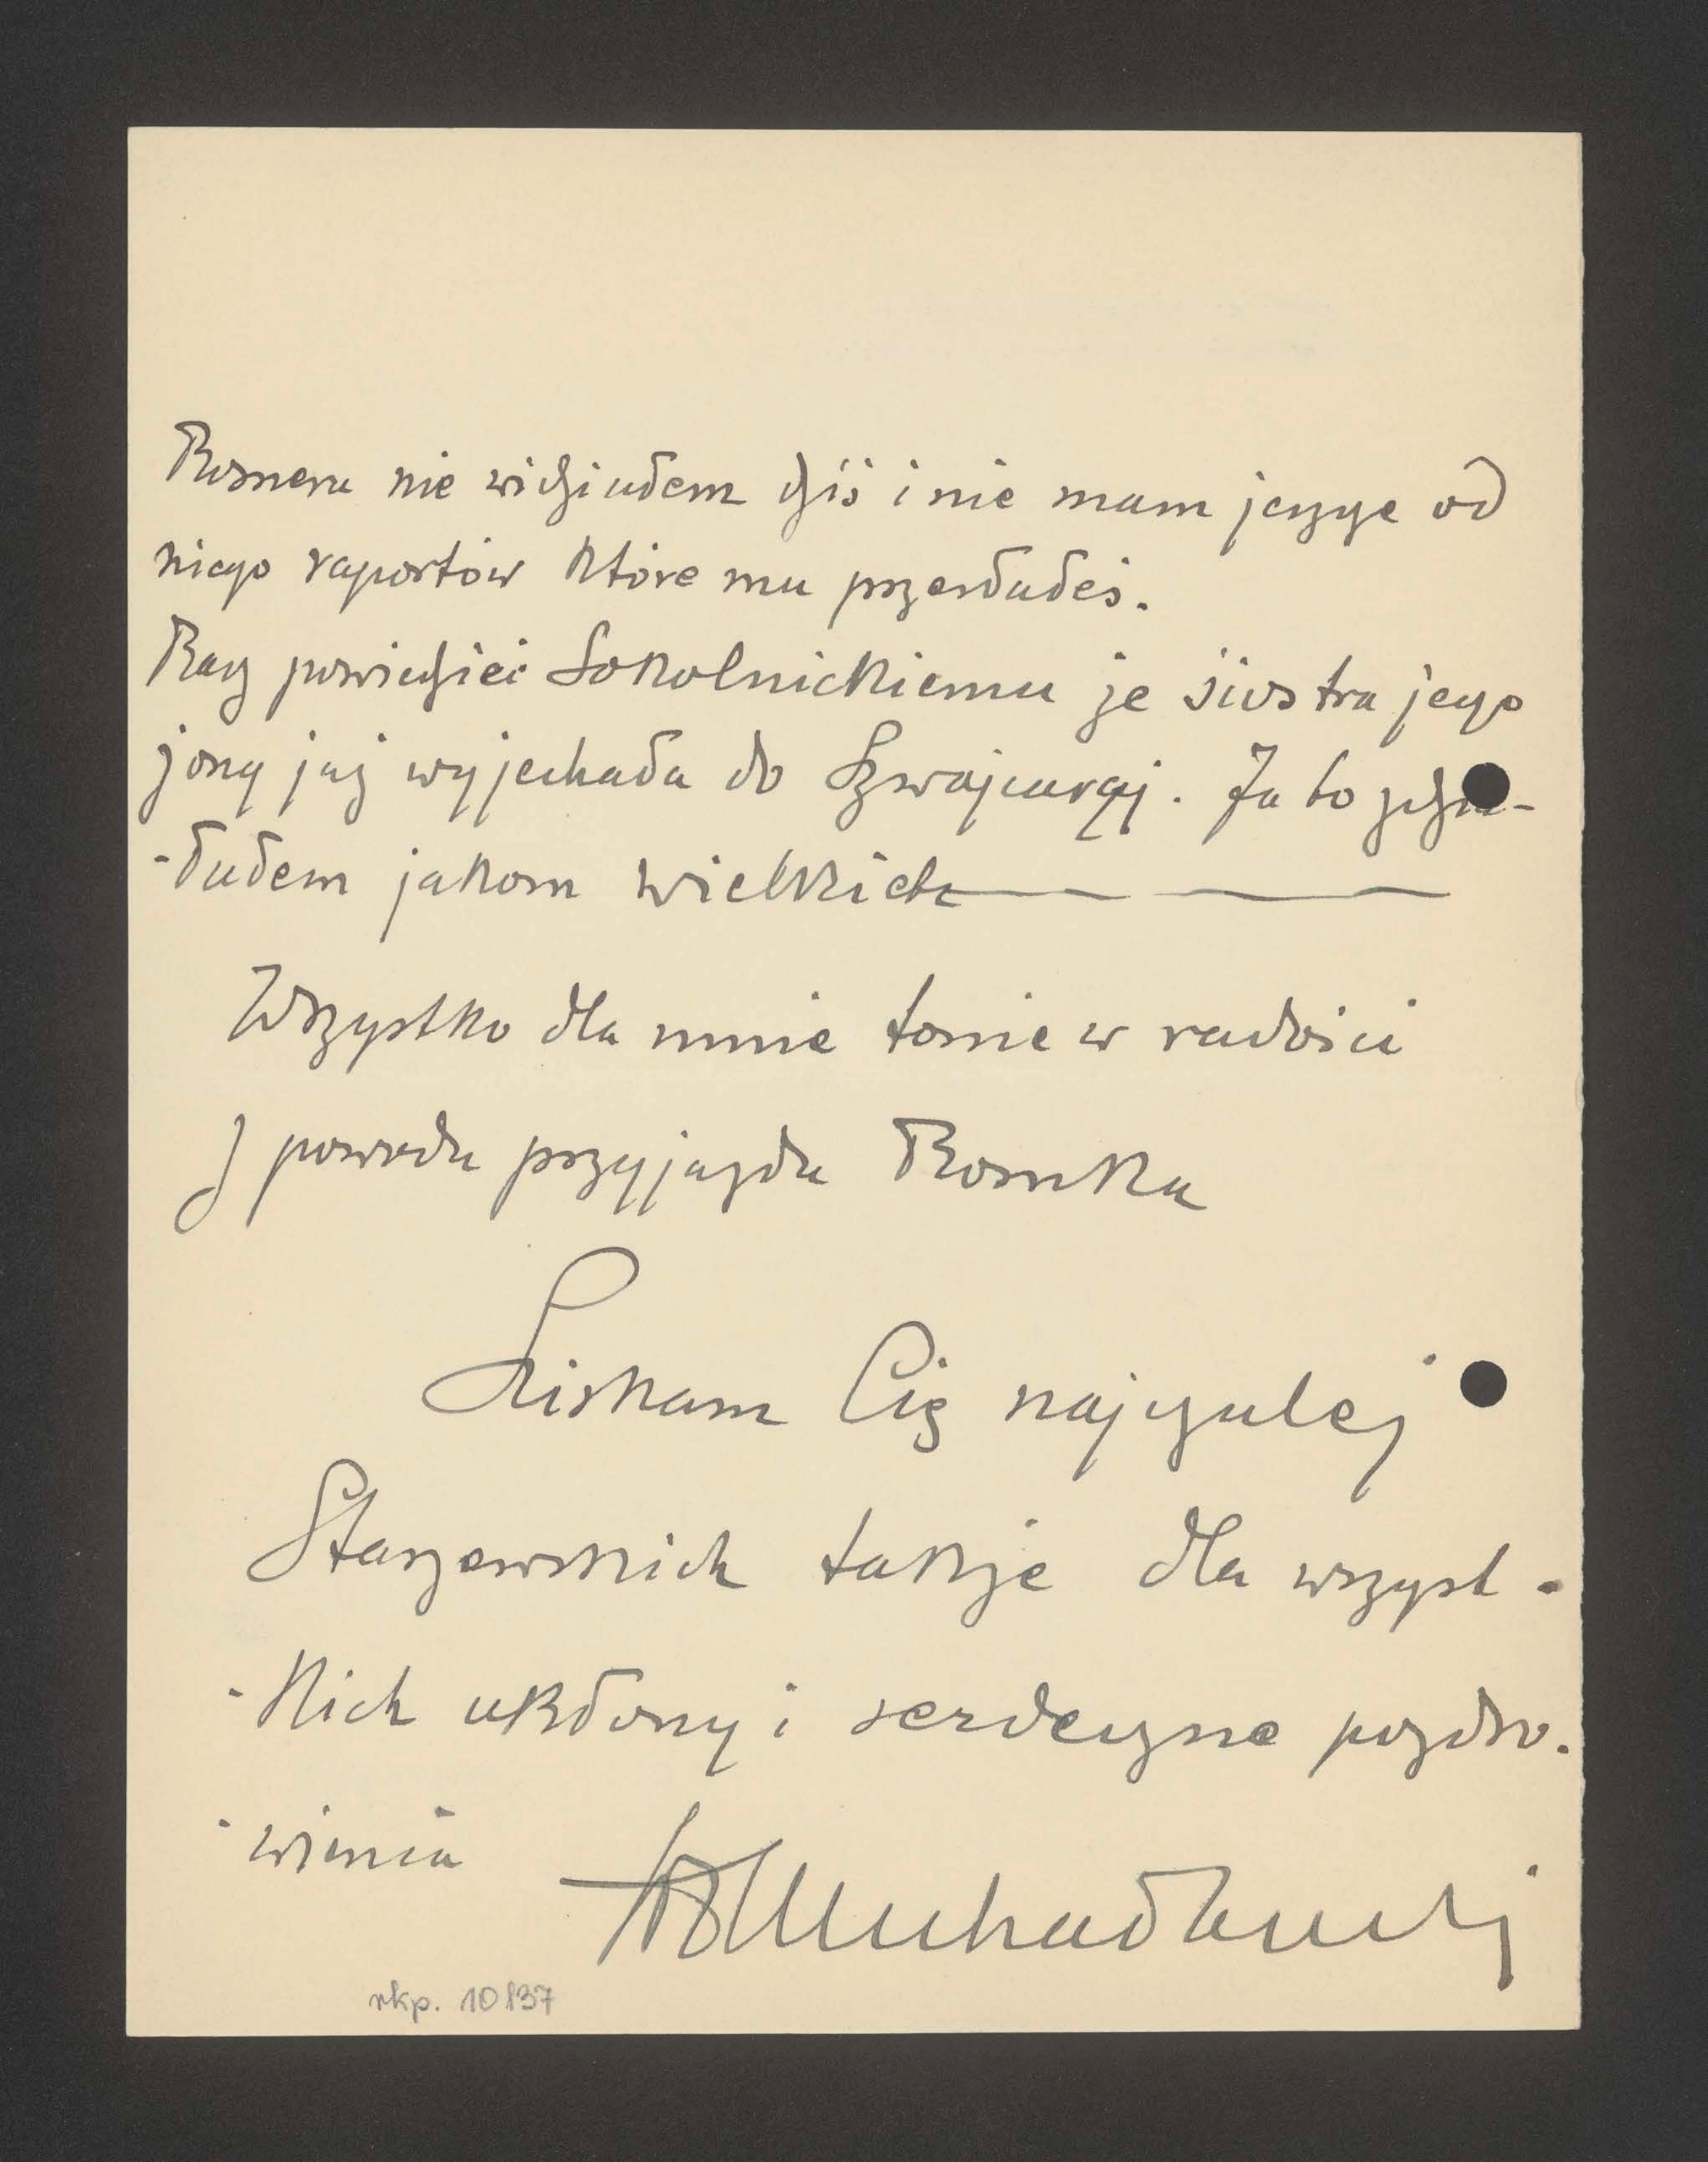 Rosnera nie widziałem dziś i nie mam jeszcze od
niego raportów które mu przesłałeś.
Racz powiedzieć Sokolnickiemu że siostra jego
żony już wyjechała do Szwajcaryj. Ja to zdzia-
-łałem jakom wielki
Wszystko dla mnie tonie w radości
z powodu przyjazdu Romka
Ściskam Cię najczulej
Staszewskich także dla wszyst-
-kich ukłony i serdeczne pozdro-
-wienia
rkp. 10837